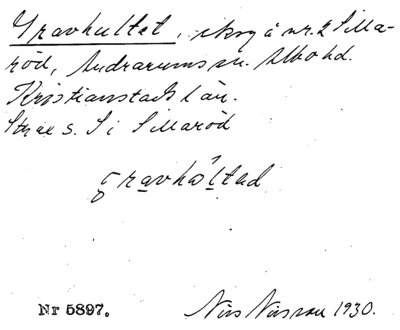 Gravhultet, skog å nr. 2 Silla-
röd, Andrarums sn. Albo hd.
Kristianstads län.
Strax s. S i Sillaröd
gravhöltad
Nr 5897. Nils Nilsson 1930.